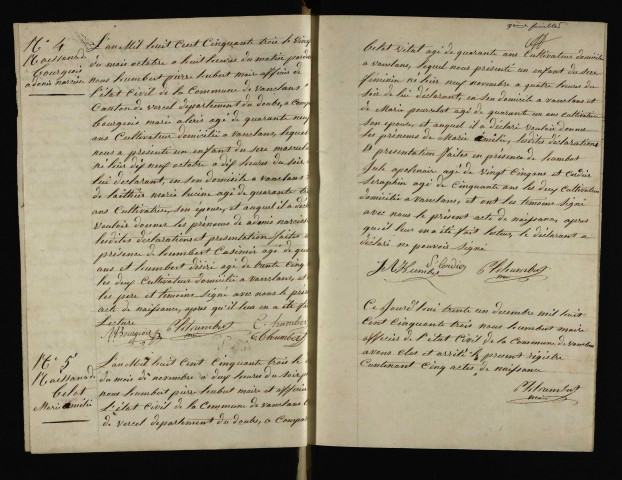 N° 4
Naissance de
bourgeois
adonis narcisse
L'an Mil huit Cent Cinquante trois le vingt
du mois octobre a huit heures du matin pardev
nous humbert pierre hubert maire officier de
l'état Civil de la Commune de vauclans
Canton de vercel departement du doubs, a Comp
bourgeois marie alexis agé de quarante neuf
ans Cultivateur domicilié a vauclans, lequel
nous a présenté un enfant du sexe masculin
né hier dix neuf octobre a dix heures du soir
lui déclarant, en son domicile a vauclans
de marie lucine agé de quarante
ans Cultivateur, son épouse, et auquel il a déclaré
vouloir donner les prénoms de adonis narcisse
lesdites déclarations et presentation faites en
présence de humbert Casimir agé de
ans et humbert désiré agé de trente cinq
les deux Cultivateur domicilié a vauclans, et
les pere et temoins signé avec nous le présent
acte de naissance, après qu'il leur en a été fait
Lecture
Bourgeois Phumbert C humbert
D humbert
N° 5
Naissance de
Celet
Marie Amélie
L'an Mil huit Cent Cinquante trois le
du mois de novembre a deux heures du soir
nous humbert pierre hubert maire et officier
L'état Civil de la Commune de vauclans
de vercel departement du doubs, a Comparu
Celet vital agé de quarante ans Cultivateur domicilié
a vauclans, lequel nous présenté un enfant du sexe
féminin né hier neuf novembre a quatre heures du
soir de lui déclarant, en son domicile a vauclans et
de Marie agé de quarante un ans cultivateur
son épouse, et auquel il a déclaré vouloir donner
les prénoms de Marie Amélie, lesdites déclarations
et presentation faites en présence de humbert
Jule apolinaire agé de vingt Cinq ans et Cordier
Seraphin agé de Cinquante ans les deux Cultivateur
domicilié a vauclans, et ont les temoins signé
avec nous le présent acte de naissance, apres
qu'il leur en a été fait lecture, le déclarant a
déclaré ne pouvoir signé
J A Humbert S Cordier Phumbert
maire
Ce Jourd'hui trente un decembre mil huit
Cent Cinquante trois nous humbert maire
officier de l'état Civil de la Commune de vauclans
avons clos et arrêté le présent registre
Contenant Cinq actes de naissance
Phumbert
maire